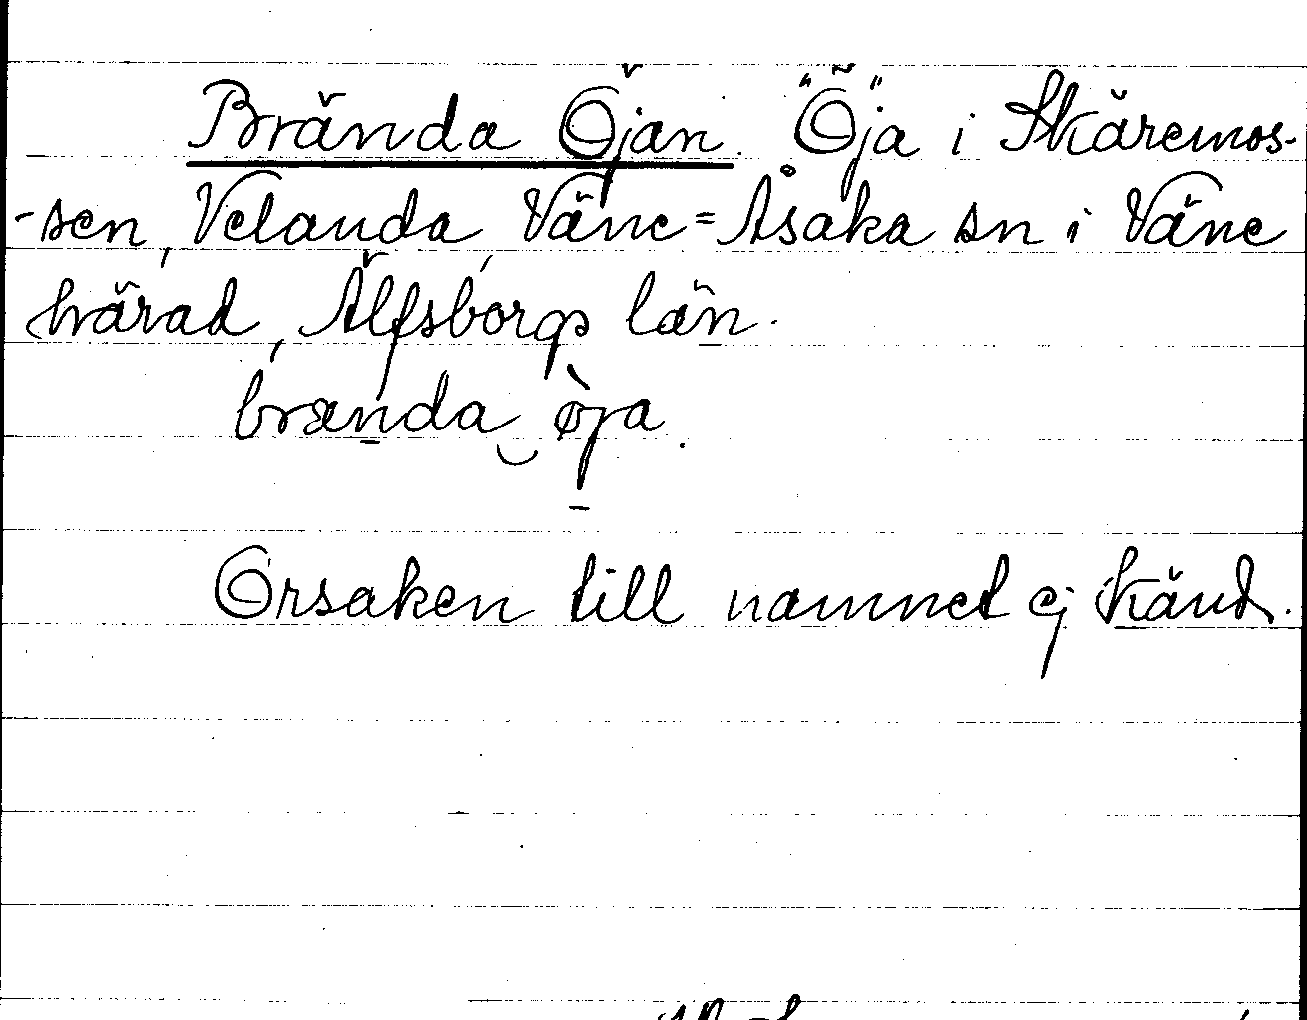 Brända Öjan. "Ö"ja i Skäremos-
-sen, Velanda, Väne=Åsaka sn i Väne
härad, Älfsborgs län.
brænda øja.
Orsaken till namnet ej känd.